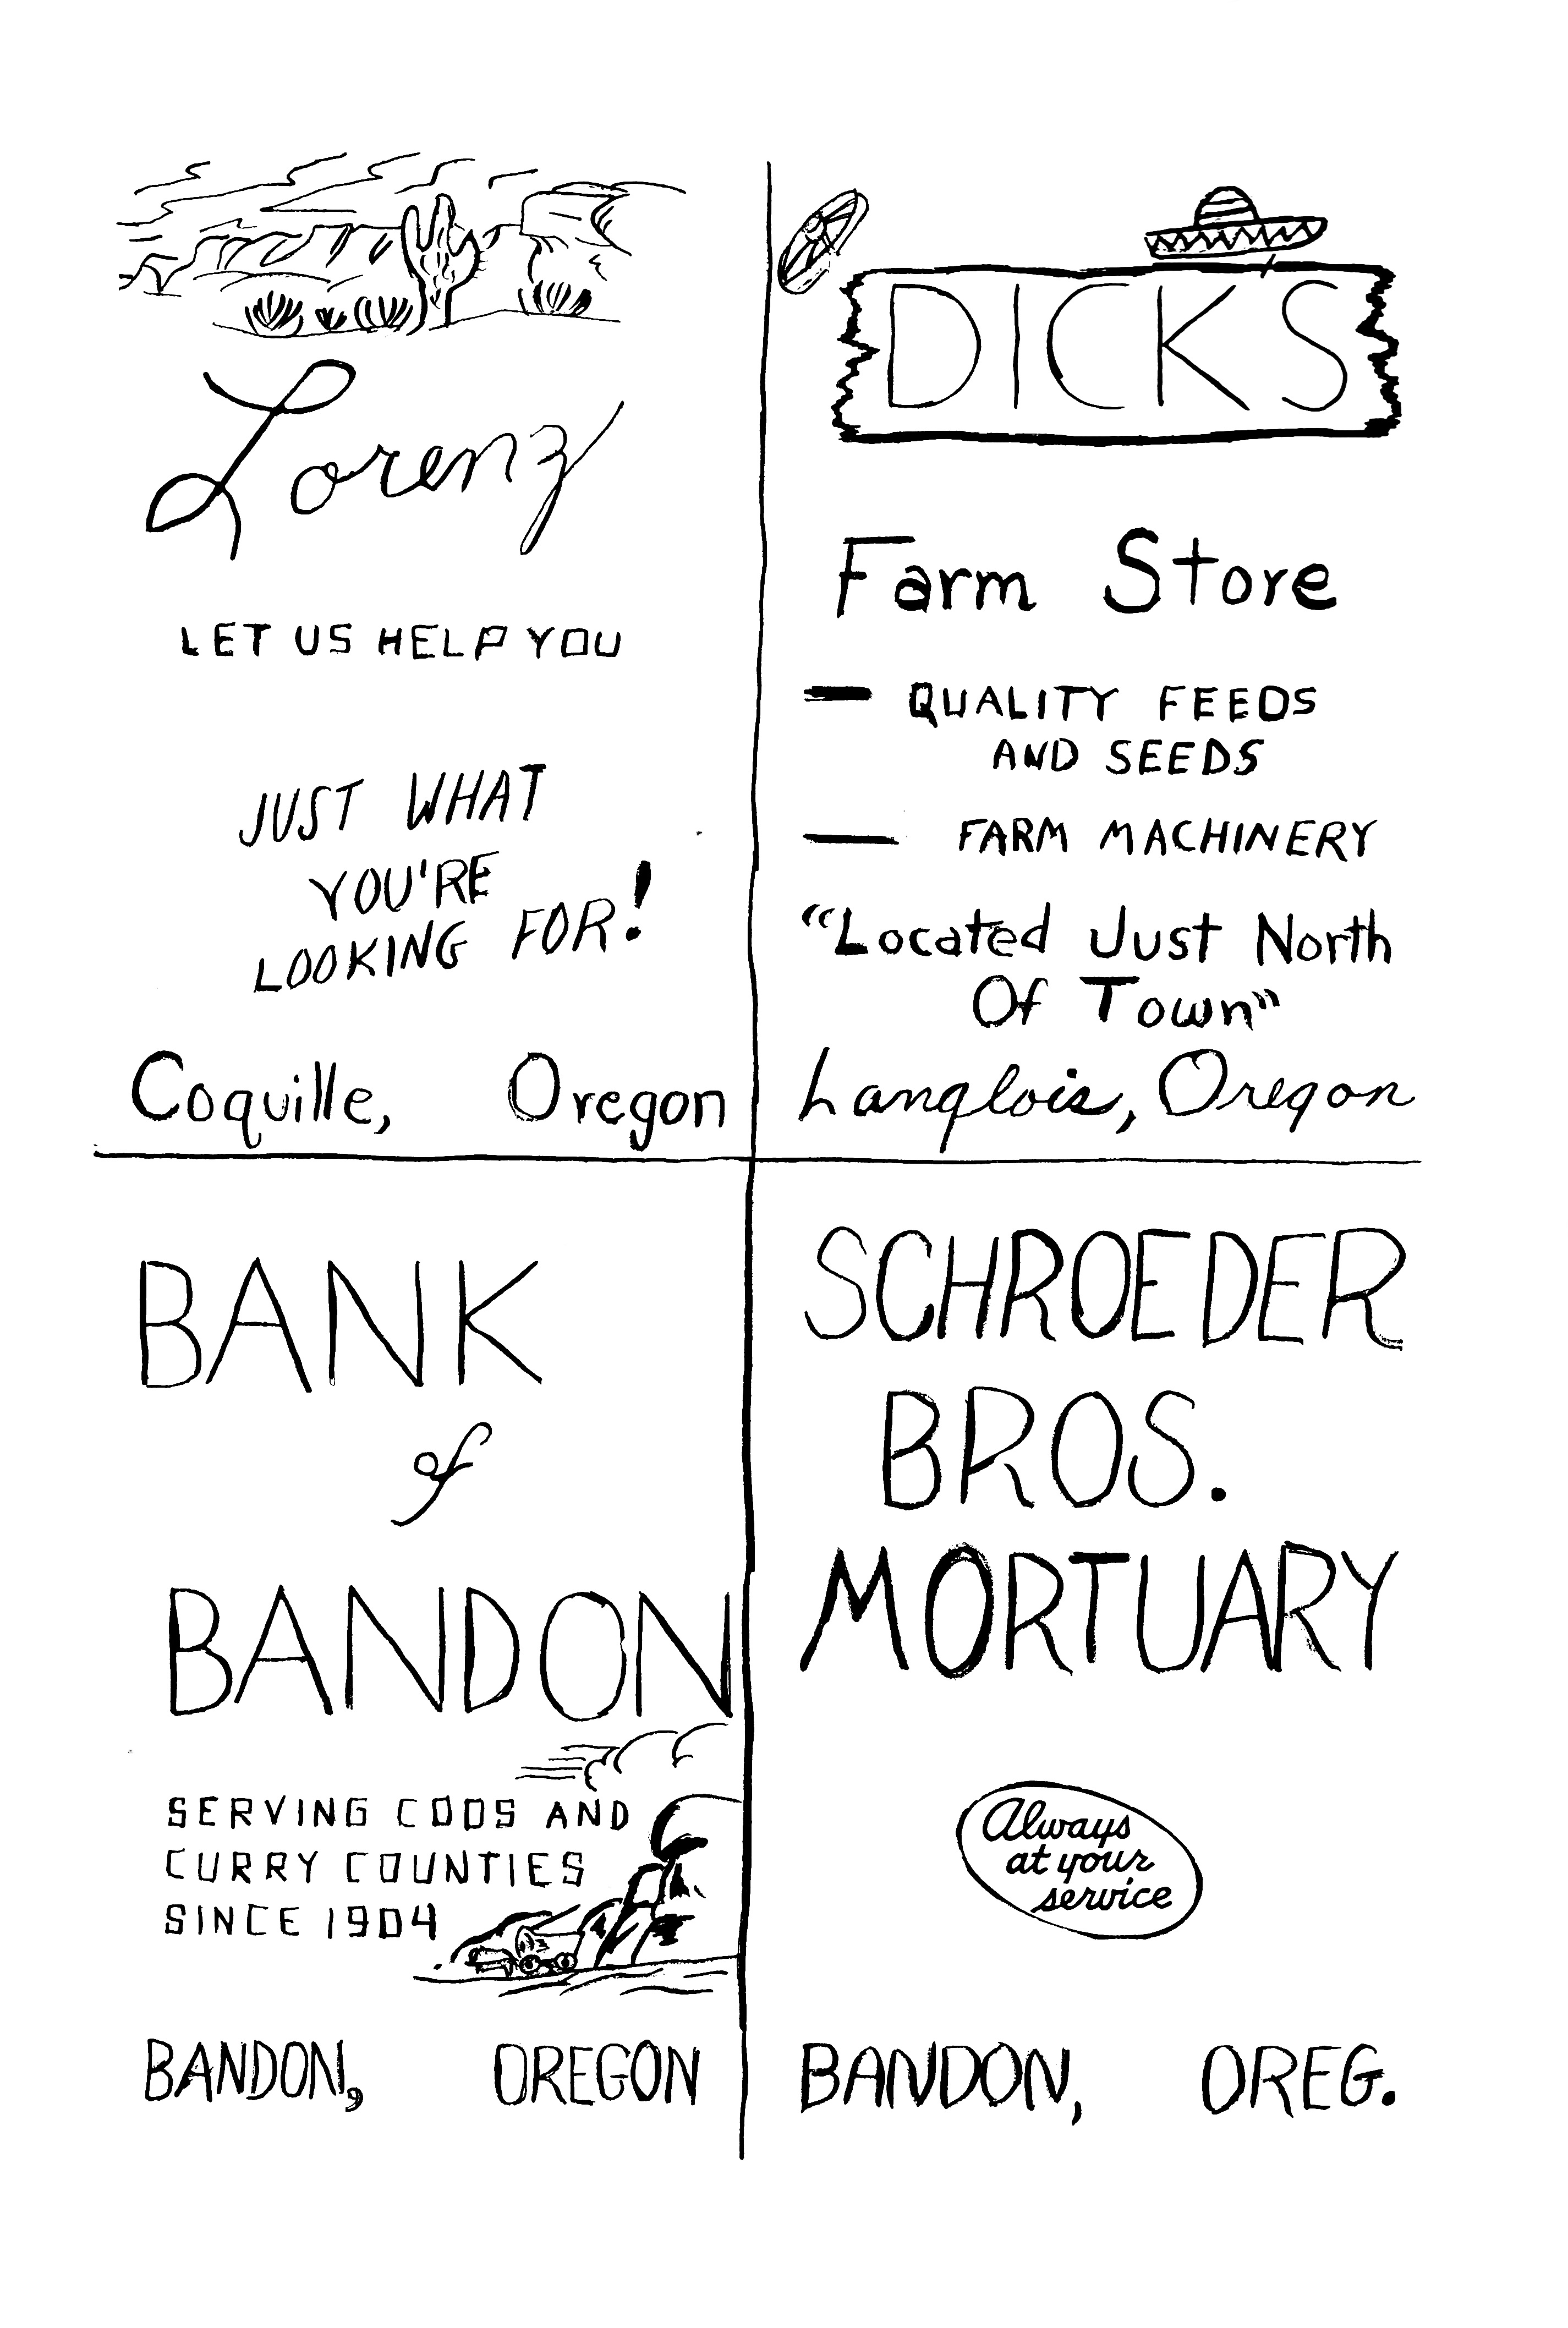 Lorenz
LET US HELP YOU
JUST WHAT
YOU'RE
LOOKING FOR!
Coquille, Oregon
DICK'S
Farm Store
— QUALITY FEEDS
AND SEEDS
— FARM MACHINERY
“Located Just North
Of Town”
Langlois, Oregon
BANK
of
BANDON
SERVING COOS AND
CURRY COUNTIES
SINCE 1904
BANDON, OREGON
SCHROEDER
BROS.
MORTUARY
Always
at your
service
BANDON, OREG.